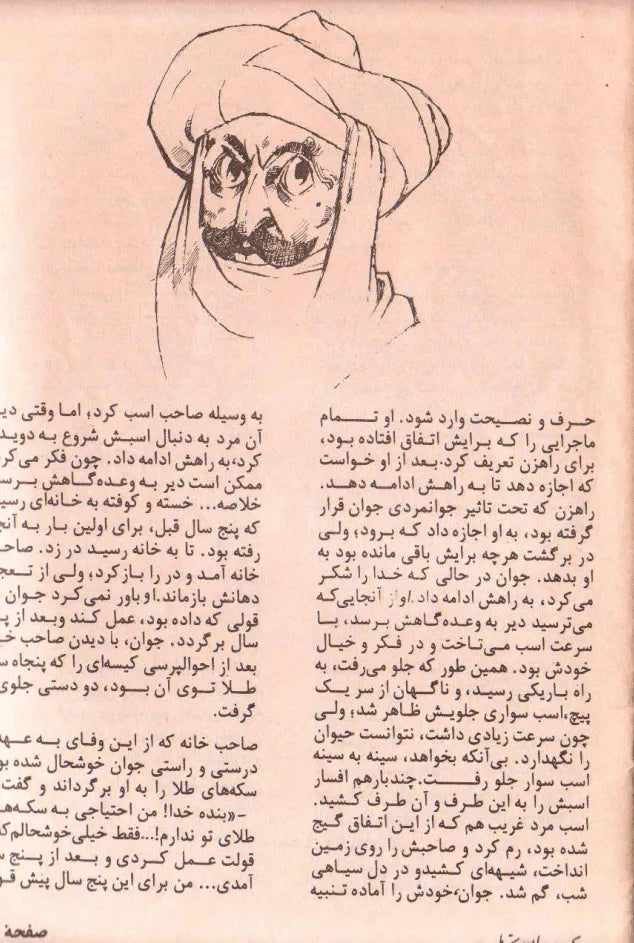 حرف و نصیحت وارد شود. او تمام
ماجرایی را که برایش اتفاق افتاده بود،
برای راهزن تعریف کرد. بعد از او خواست
که اجازه دهد تا به راهش ادامه دهد.
راهزن که تحت تاثیر جوانمردی جوان قرار
گرفته بود، به او اجازه داد که برود؛ ولی
در برگشت هرچه برایش باقی مانده بود به
او بدهد. جوان در حالی که خدا را شکر
می‌کرد، به راهش ادامه داد. او از آنجایی‌که
می‌ترسید دیر به وعده‌گاهش برسد، با
سرعت اسب می‌تاخت و در فکر و خیال
خودش بود. همین طور که جلو می‌رفت، به
راه باریکی رسید، و ناگهان از سر یک
پیچ،اسب سواری جلویش ظاهر شد؛ ولی
چون سرعت زیادی داشت، نتوانست حیوان
را نگهدارد. بی‌آنکه بخواهد، سینه به سینه
اسب سوار جلو رفت. چندبارهم افسار
اسبش را به این طرف و آن طرف کشید.
اسب مرد غریب هم که از این اتفاق گیج
شده بود، رم کرد و صاحبش را روی زمین
انداخت، شیهه‌ای کشیدو در دل سیاهی
شب، گم شد. جوان،خودش را آماده تنبیه
به وسیله صاحب اسب کرد؛ اما وقتی
آن مرد به دنبال اسبش شروع به
کرد،به راهش ادامه داد. چون فکر
ممکن است دیر به وعده‌گاهش
خلاصه... خسته و کوفته به خانه‌ای
که پنج سال قبل، برای اولین بار به
رفته بود. تا به خانه رسید در زد.
خانه آمد و در را باز کرد؛ ولی از
دهانش بازماند. او باور نمی‌کرد جوان
قولی که داده بود، عمل کند وبعد از
سال برگردد. جوان، با دیدن صاحب
بعد از احوالپرسی کیسه‌ای را که پنجاه
طلا توی آن بود، دو دستی جلوی
گرفت.
صاحب خانه که از این وفای به
درستی و راستی جوان خوشحال شده
سکه‌های طلا را به او برگرداند و گفت
-«بنده خدا! من احتیاجی به
طلای تو ندارم!...فقط خیلی خوشحالم
قولت عمل کردی و بعد از پنج
آمدی... من برای این پنج سال پیش
صفحهٔ